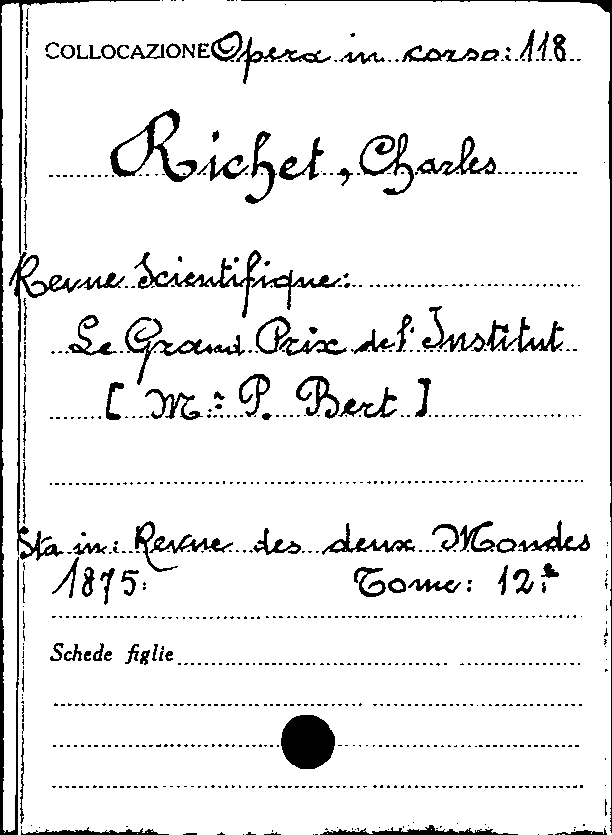 COLLOCAZIONE Opera in corso: 118
Richet, Charles
Revue Scientifique:
Le Grand Prix de l'Institut
[ M.r P. Bert ]
Sta in: Revue des deux Mondes
1875. Tome: 12.e
Schede figlie